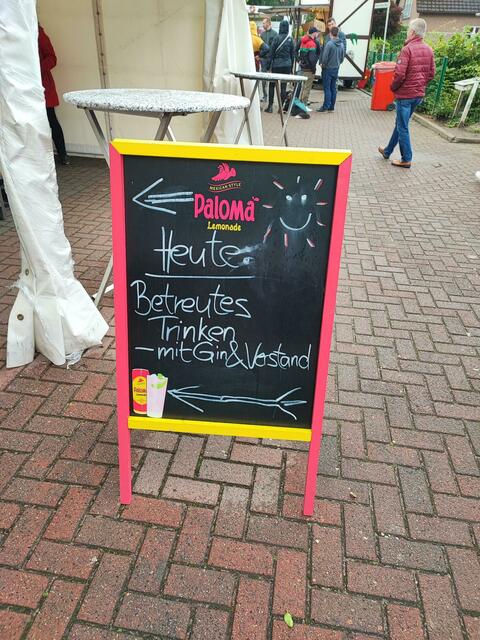 MEXICAN STYLE
PALOMA™
Lemonade
Heute
Betreutes
Trinken
- mit Gin & Verstand
PALOMA